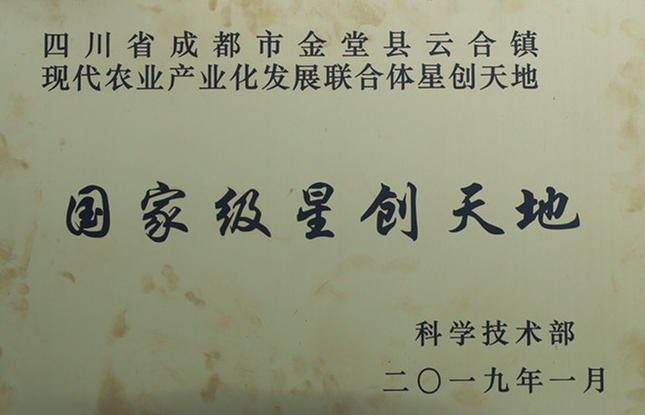 四川省成都市金堂县云合镇
现代农业产业化发展联合体星创天地
国家级星创天地
科学技术部
二〇一九年一月